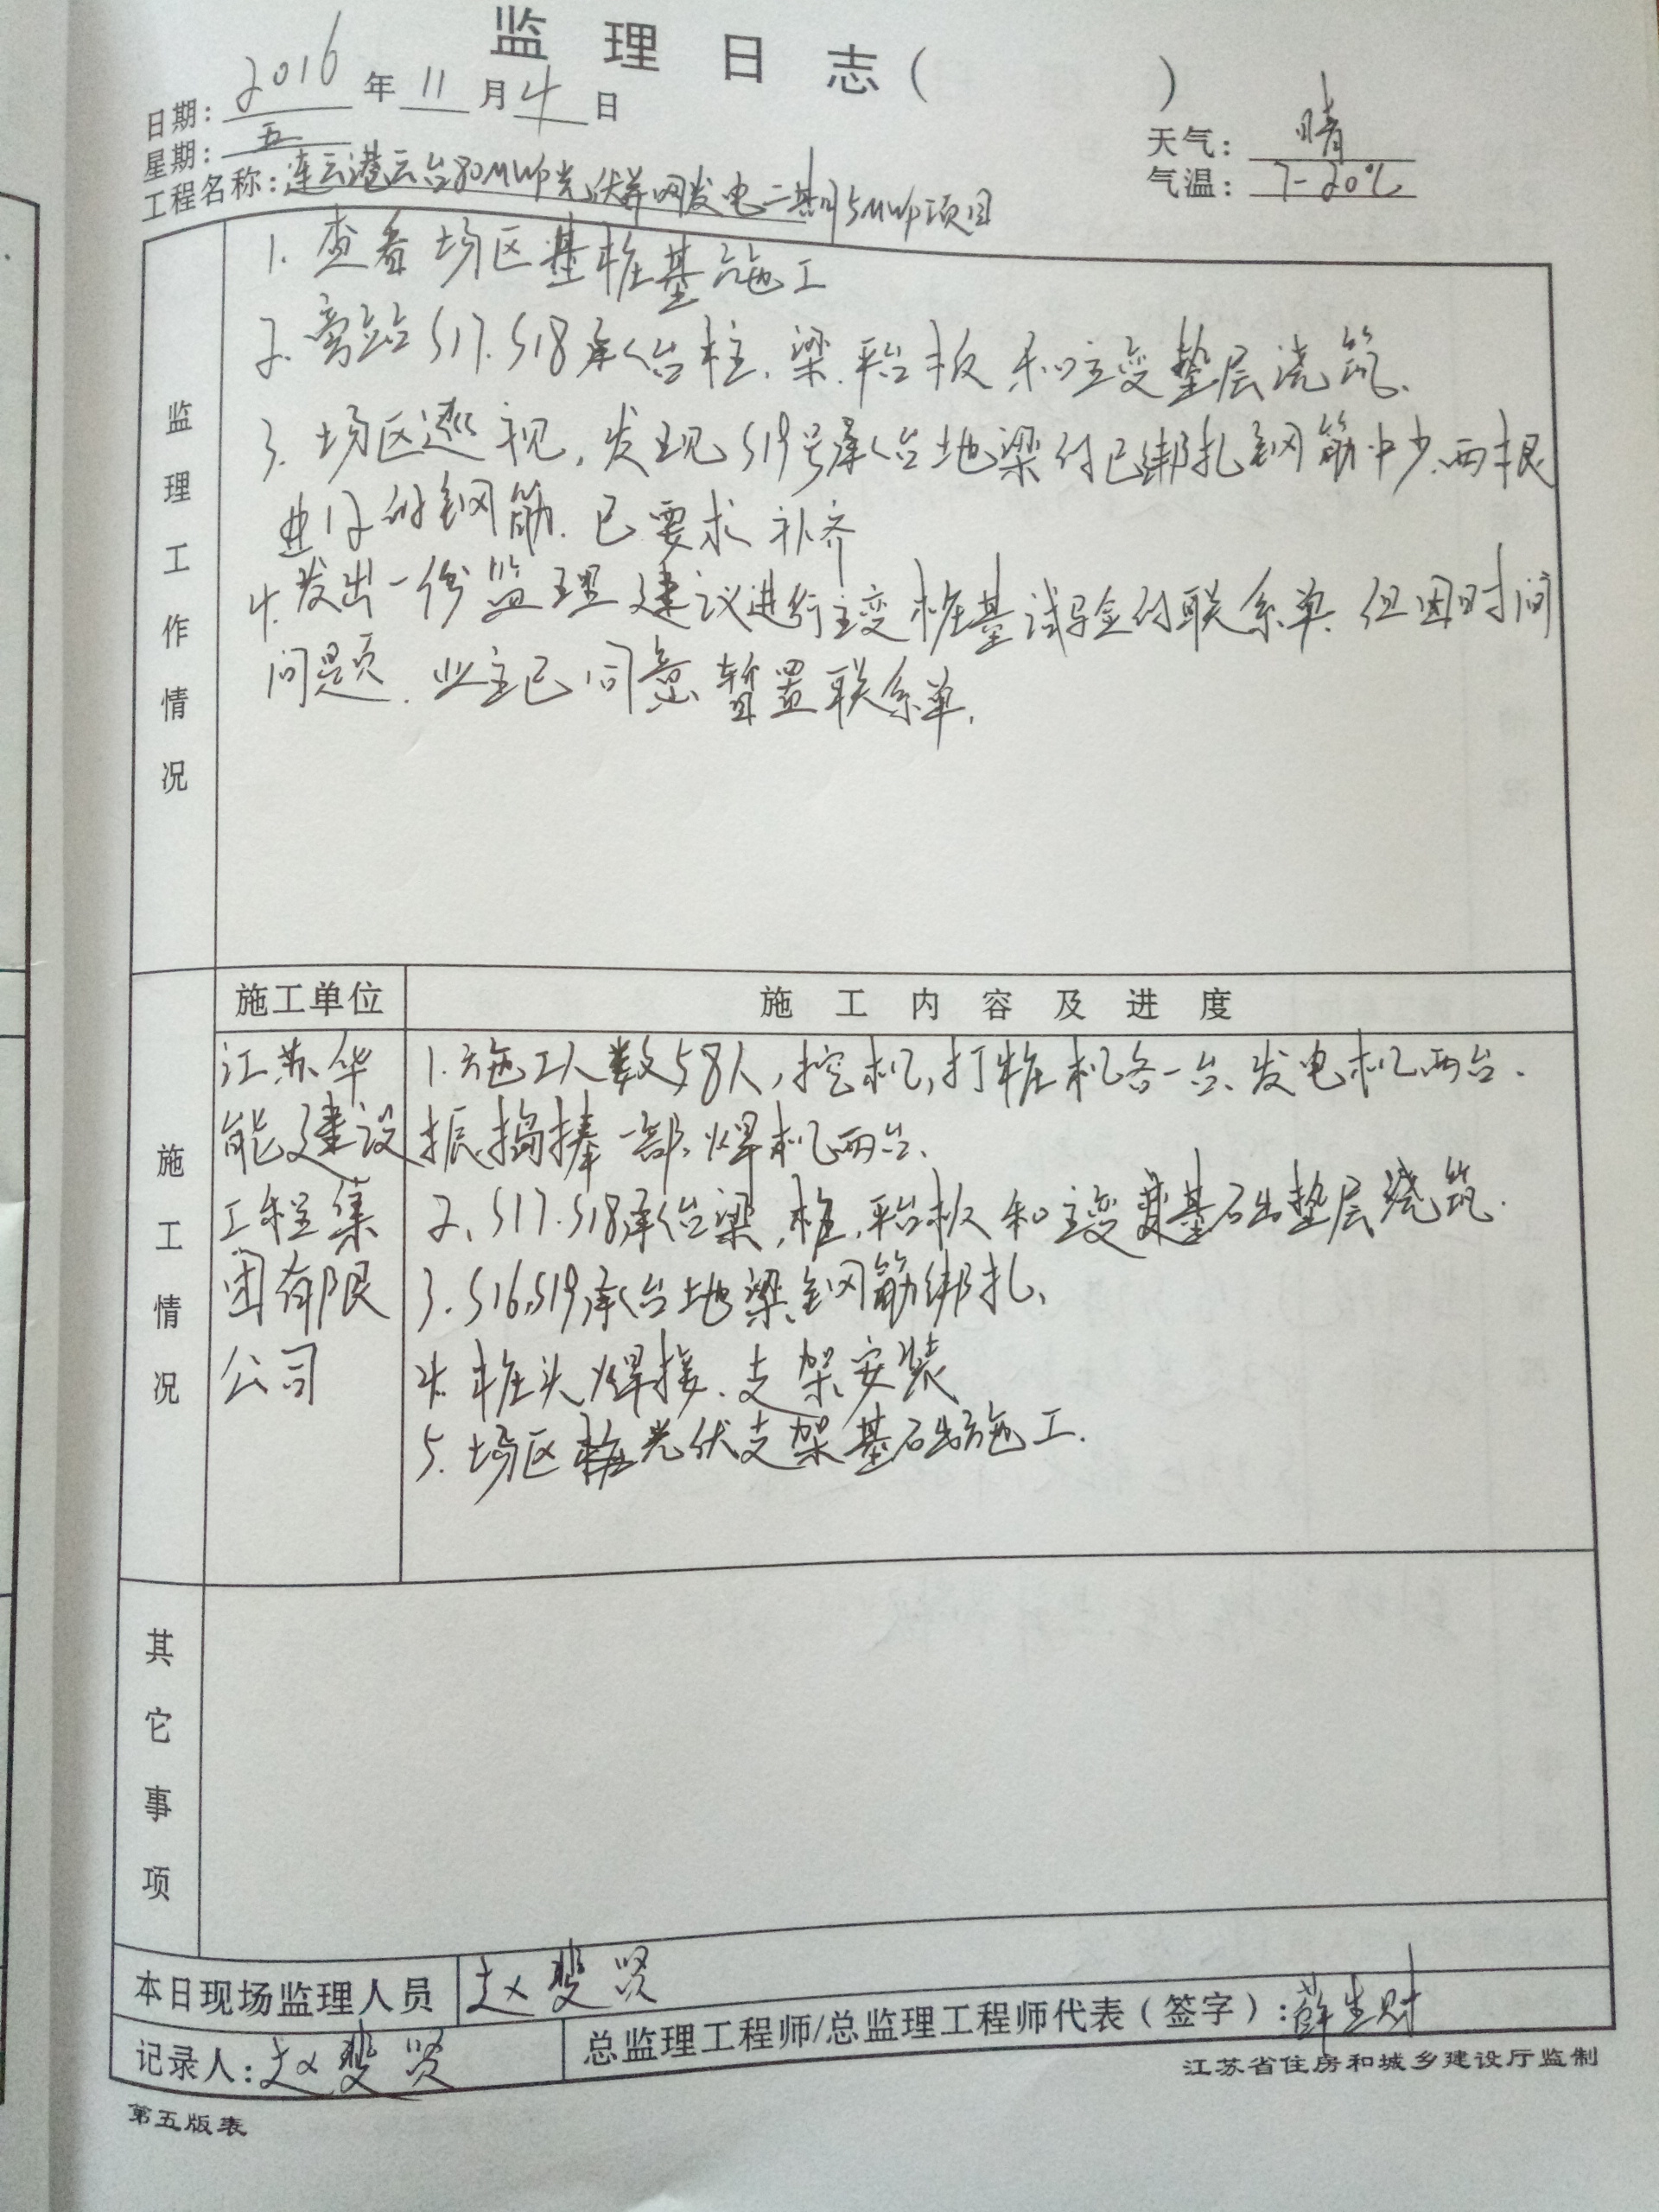 监理日志（ ）
日期：2016年11月4日
星期：五
天气：晴
气温：7-20℃
工程名称：连云港云台80MWp光伏并网发电二期15MWp项目
监理工作情况
1. 查看场区基桩基施工
2. 旁站S17.S18承台柱、梁.平台板和主变垫层浇筑.
3. 场区巡视,发现S19号承台地梁的已绑扎钢筋中少两根
直12的钢筋.已要求补齐
4.发出一份监理建议进行主变桩基试验的联系单.但因时间
问题.业主已同意暂置联系单.
施工单位 施工内容及进度
施工情况
江苏华
能建设
工程集
团有限
公司
1.施工人数58人,挖机,打桩机各一台、发电机两台.
振捣捧一部、焊机两台.
2、S17.S18承台梁,柱,平台板和主变基础垫层浇筑.
3.S16.S19承台地梁钢筋绑扎、
4.桩头焊接.支架安装
5.场区光伏支架基础施工.
其它事项
本日现场监理人员 赵斐贤
记录人：赵斐贤
总监理工程师/总监理工程师代表（签字）：薛生财
江苏省住房和城乡建设厅监制
第五版表